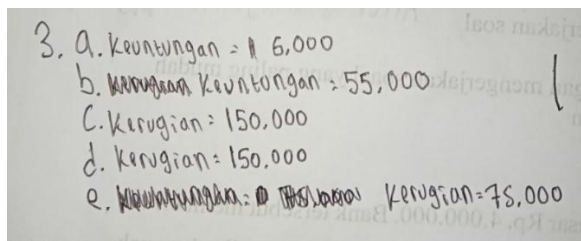 3. a. Keuntungan = 6,000
b. Keuntongan = 55,000
C. Kerugian = 150.000
d. Kerugian = 150.000
e. Kerugian = 75,000